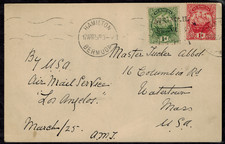 HAMILTON
BERMUDA
By USA
Air Mail Service
"Los Angeles."
March/25.
Master Tucker Abbot
16 Columbia Rd
Watertown
Mass
U.S.A.